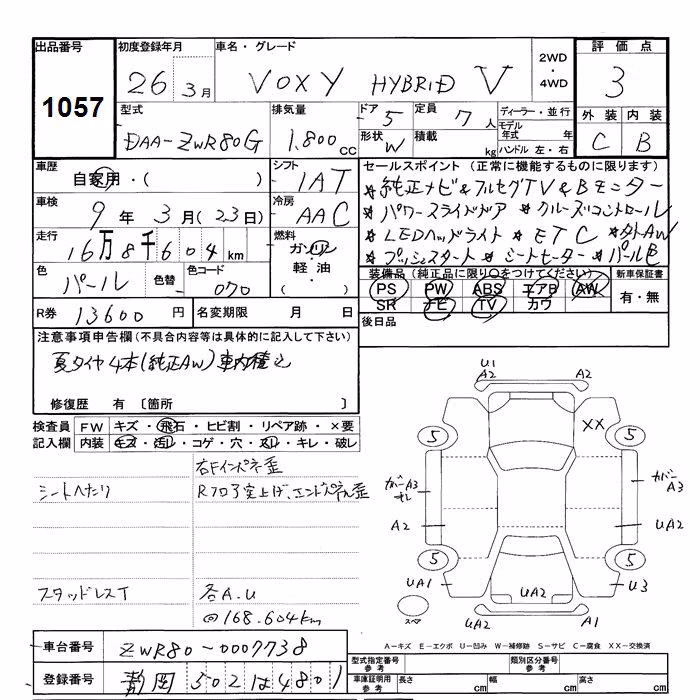 出品番号 初度登録年月 車名・グレード 2WD・4WD 評価点
1057 26 3月 VOXY HYBRID V 3
型式 排気量 ドア 5 定員 7人 ディーラー・並行 外装 内装
DAA-ZWR80G 1.800cc 形状 W 積載 kg モデル年式 年 ハンドル 左・右 C B
車歴 自家用・( ) シフト IAT
セールスポイント(正常に機能するものに限ります)
*純正ナビ&フルセグTV&Bモニター
車検 9年3月(23日) 冷房 AAC
*パワースライドドア *クルーズコントロール
走行 16万8千604km 燃料 ガソリン・軽油・( )
*LEDヘッドライト *ETC *外AW
*プッシュスタート *シートヒーター *パールB
色 パール 色替 色コード 070
装備品(純正品に限り○をつけてください) 新車保証書
PS PW ABS エアB AW 有・無
SR ナビ TV カワ
R券 13600円 名変期限 月 日 後日品
注意事項申告欄(不具合内容等は具体的に記入して下さい)
夏タイヤ4本(純正AW)車内積込
修復歴 有〔箇所 〕
検査員 FW キズ・飛石・ヒビ割・リペア跡・×要
記入欄 内装 キズ・汚れ・コゲ・穴・スレ・キレ・破レ
右Fインパネ歪
シートヘタリ Rフロア突上げ、エンドパネル歪
スタッドレスT 各A.U
@168.604km
U1
A2 A2
XX
5 5
カバーA3 カバーA3
A2 UA2
5 5
UA1 UA2 U3
スペア U2 A1
A-キズ E-エクボ U-凹み W-補修跡 S-サビ C-腐食 XX-交換済
車台番号 ZWR80-0007738
型式指定番号 参考 類別区分番号 参考
登録番号 静岡 502 は 4801
車庫証明用 参考 長さ cm 幅 cm 高さ cm